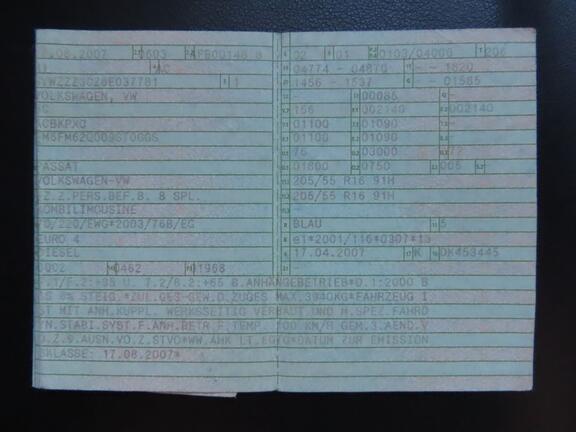 .08.2007 0603
AC
VWZZZ3CZ8E037781 1
VOLKSWAGEN, VW
3C
ACBKPX0
FM6FM62Q009ST0GGS
PASSAT
VOLKSWAGEN-VW
FZ.Z.PERS.BEF.B. 8 SPL.
KOMBILIMOUSINE
70/220/EWG*2003/76B/EG
EURO 4
DIESEL
0002 0462 1968
02 01 0103/04000 206
04774 - 04870 - - 1820
1456 - 1537 - - 01585
00085 -
002140 002140
01100 01090 -
01100 01090 -
76 03000 72
01800 0750 005
205/55 R16 91H
205/55 R16 91H
-
BLAU 5
e1*2001/116*0307*
17.04.2007 K DK453445
-
U. 7.2/8.2:+65 B.ANHÄNGEBETRIEB*O.1:2000 B
8% STEIG.*ZUL.GES-GEW.D.ZUGES MAX.3940KG*FAHRZEUG I
ST MIT ANH.KUPPL. WERKSSEITIG VERBAUT UND M.SPEZ.FAHRD
YN.STABI.SYST.F.ANH.BETR.F.TEMP. 100 KM/H GEM.3.AEND.V
O.Z.9.AUSN.VO.Z.STVO*WW.AHK LT.EG DATUM ZUR EMISSION
SKLASSE: 17.08.2007*